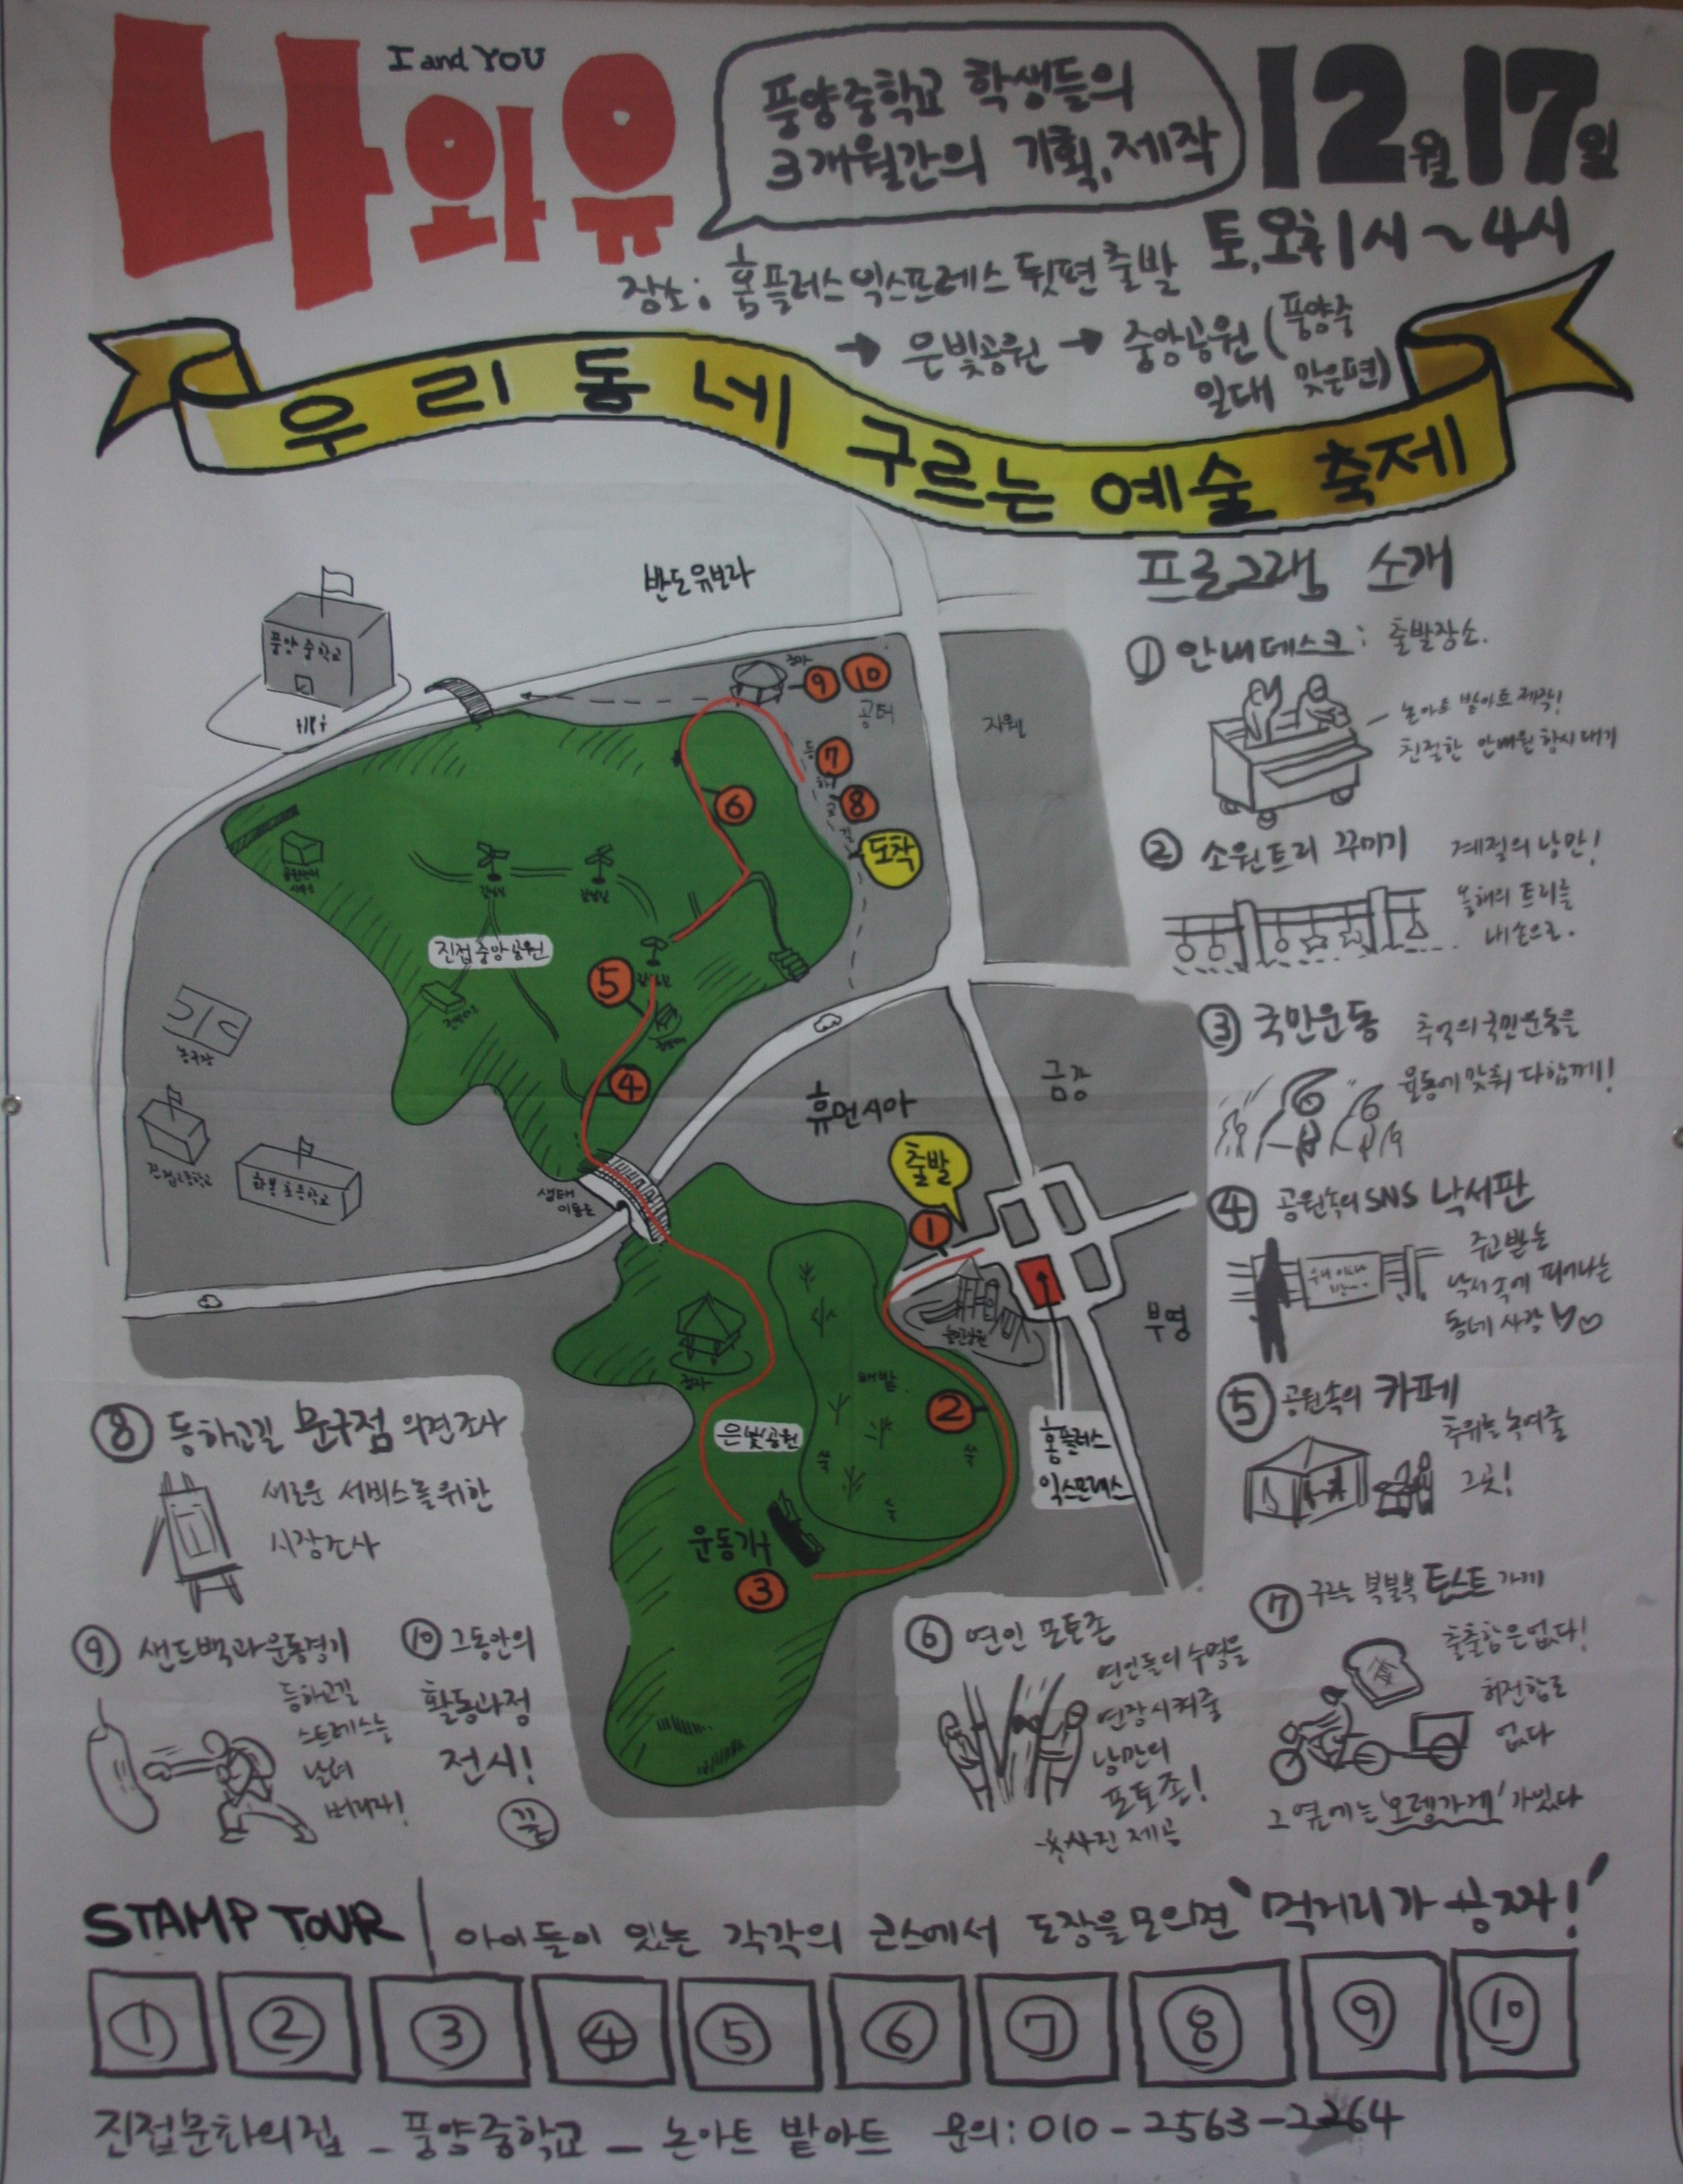 I and YOU
나와유
풍양중학교 학생들의
3개월간의 기획, 제작
12월17일
토, 오후 1시 ~ 4시
장소: 홈플러스 익스프레스 뒷편 출발
→ 은빛공원 → 중앙공원 (풍양중
일대 맞은편)
우리동네 구르는 예술 축제
반도유보라
풍양중학교
정자
9
10
공터
지원
7
등
하
굣
길
8
도착
6
진접중앙공원
5
4
농구장
진접고등학교
화봉초등학교
생태
이동로
휴먼시아
금강
출발
1
부영
정자
은빛공원
2
쑥
쑥
쑥
홈플러스
익스프레스
운동기구
3
프로그램 소개
① 안내데스크: 출발장소.
논아트 밭아트 제작!
친절한 안내원 항시 대기
② 소원트리 꾸미기 계절의 낭만!
올해의 트리를
내손으로.
③ 국민운동 추억의 국민운동을
율동에 맞춰 다함께!
④ 공원속의 SNS 낙서판
주고받는
낙서속에 피어나는
동네 사랑 ♡
⑤ 공원속의 카페
추위를 녹여줄
그곳!
⑥ 연인 포토존
연인들의 수명을
연장시켜줄
낭만의
포토존!
사진 제공
⑦ 구르는 복불복 토스트 가게
출출함은 없다!
허전함도
없다
그 옆에는 '오뎅가게'가 있다
⑧ 등하교길 문구점 의견조사
새로운 서비스를 위한
시장조사
⑨ 샌드백과 운동경기
등하교길
스트레스는
날려
버리자!
⑩ 그동안의
활동과정
전시!
끝
STAMP TOUR | 아이들이 있는 각각의 코스에서 도장을 모으면 '먹거리가 공짜!'
① ② ③ ④ ⑤ ⑥ ⑦ ⑧ ⑨ ⑩
진접문화의집 - 풍양중학교 - 논아트 밭아트 문의: 010-2563-2264